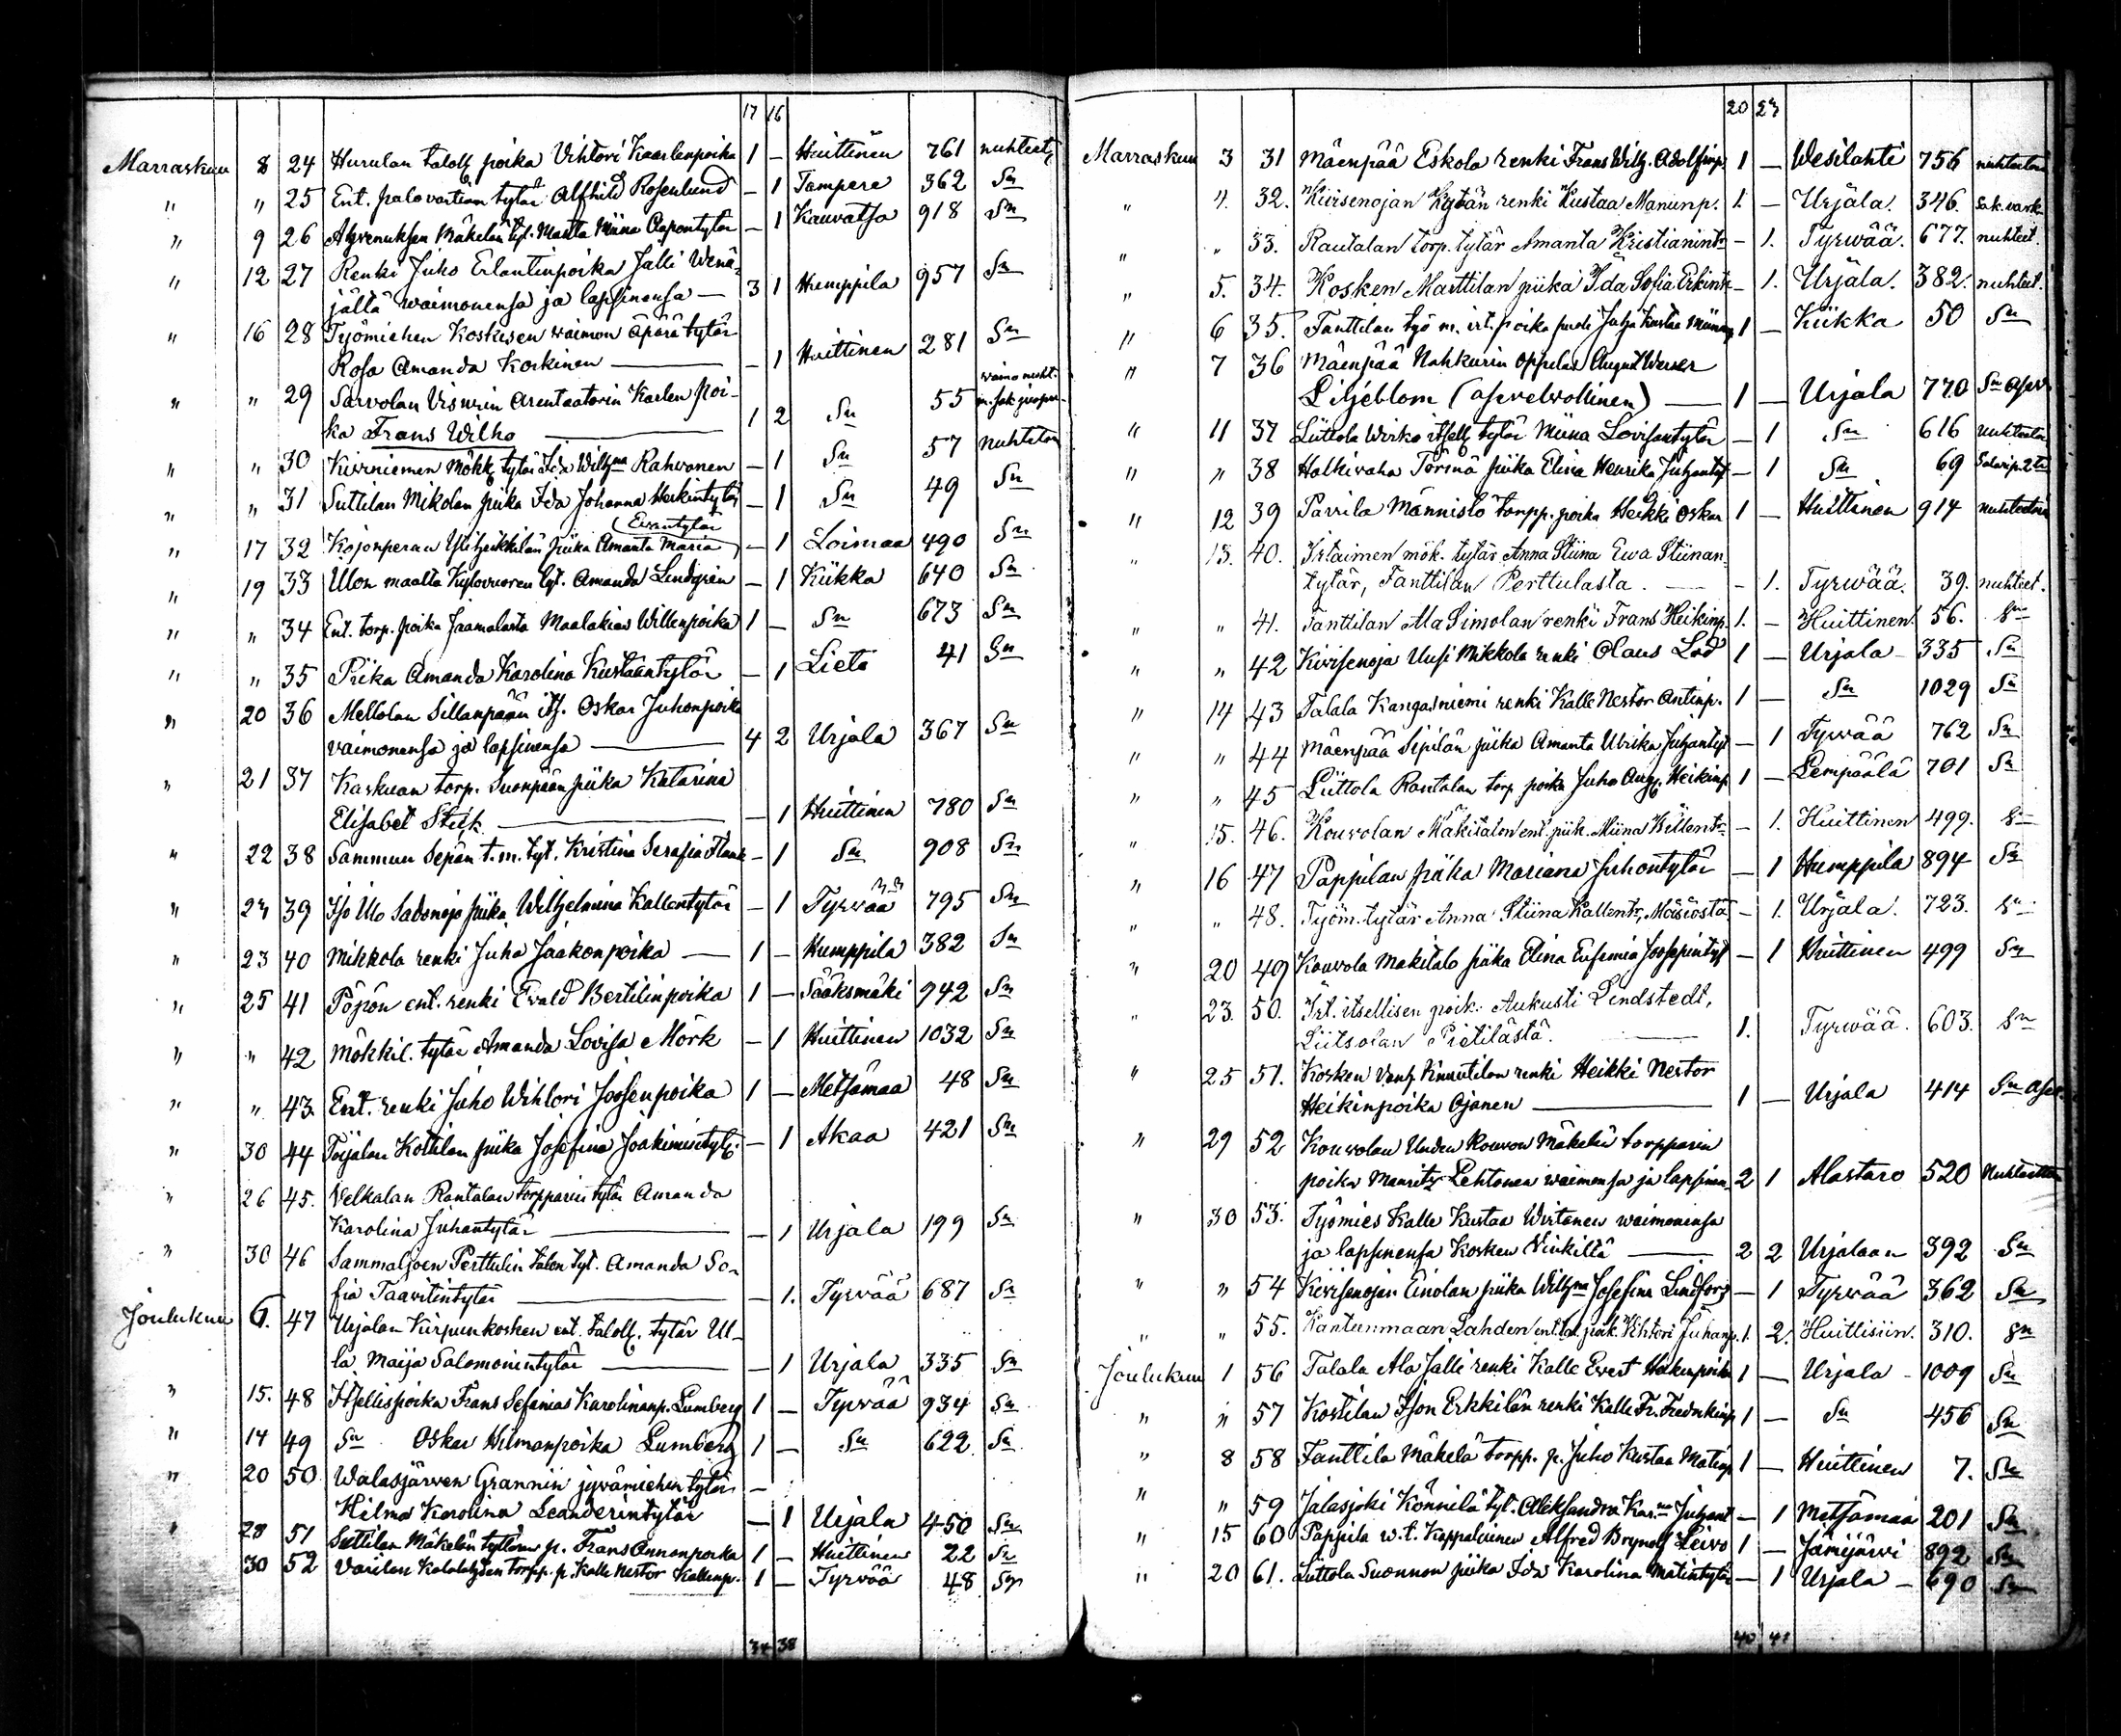 17 16
Marraskuu 8 24 Hurulan taloll. poika Vihtori Kaarlenpoika 1 – Huittinen 761 nuhteet.
" " 25 Ent. palovartian tytär Alfhild Rosenlund – 1 Tampere 362 Sn
" 9 26 Mäkelän tyt. Manta Miina Aapontytär – 1 Kauvatsa 918 Sn
" 12 27 Renki Juho Erlantinpoika Jalli Wenä-
jältä waimonensa ja lapsinensa — 3 1 Humppila 957 Sn
" 16 28 Työmiehen Koskisen waimon äpärä tytär
Rosa Amanda Koskinen — – 1 Huittinen 281 Sn
" " 29 Sarvolan Visurin arentaatorin Karlen poi-
ka Frans Wilho — 1 2 Sn 55 waimo nuht.
" " 30 Kirniemen Mökk. tytär Ida Wilhna Rahvonen – 1 Sn 57 nuhteton
" " 31 Suttilan Mikolan piika Ida Johanna Heikintytär – 1 Sn 49 Sn
(Eevantytär
" 17 32 Kojonperän Ylitzeikkilän piika Amanta Maria – 1 Loimaa 490 Sn
" 19 33 Ulon maalta Kylovuoren tyt. Amanda Lindgrén – 1 Kiikka 640 Sn
" " 34 Ent. torp. poika Jaamalasta Maalakias Willenpoika 1 – Sn 673 Sn
" " 35 Piika Amanda Karolina Kustaantytär – 1 Lieto 41 Sn
" 20 36 Mellolan Sillanpään its. Oskar Juhonpoika
vaimonensa ja lapsinensa — 4 2 Urjala 367 Sn
" 21 37 Kaskuan torp. Suonpään piika Katarina
Elisabet Stick — – 1 Huittinen 780 Sn
" 22 38 Sammun Sepän t.m. tyt. Kristina Serafia – 1 Sn 908 Sn
" 23 39 Iso Ulo Sadonoja piika Wilhelmina Kallentytär – 1 Tyrwää 795 Sn
" 23 40 Mikkola renki Juha Jaakonpoika — 1 – Humppila 382 Sn
" 25 41 Pöjrön ent. renki Evald Bertilinpoika 1 – Sääksmäki 942 Sn
" " 42 Mökkil. tytär Amanda Lovisa Mörk – 1 Huittinen 1032 Sn
" " 43 Ent. renki Juho Wihtori Joosenpoika 1 – Metsämaa 48 Sn
" 30 44 Töijälan Kottilan piika Josefina Joakimintyt. – 1 Akaa 421 Sn
" 26 45. Velkalan Rantalan torpparin tytär Amanda
Karolina Juhantytär — – 1 Urjala 199 Sn
" 30 46 Sammaljoen Perttulin talon tyt. Amanda So-
fia Taavitintytär — – 1. Tyrvää 687 Sn
Joulukuu 7. 47 Urjalan Kirpunkosken ent. taloll. tytär Ul-
la Maija Salomonintytär — – 1 Urjala 335 Sn
" 15. 48 Itsellispoika Frans Sefanias Karolinanp. Lumberg 1 – Tyrvää 934 Sn
" 14 49 Sn Oskar Hilmanpoika Lumberg 1 – Sn 622 Sn
" 20 50 Walasjärven Grannin jyvämiehen tytär –
Hilma Karolina Leanderintytär – 1 Urjala 450 Sn
" 28 51 Suttilan Mäkelän tyttären p. Frans Annanpoika 1 – Huittinen 22 Sn
30 52 Varilan Kalalahden torpp. p. Kalle Nestor Kallenp. 1 – Tyrvää 48 Sn
34 38
20 23
Marraskuu 3 31 Mäenpää Eskola renki Frans Wilh. Adolfinp. 1 – Wesilahti 756 nuhteeton
" 4. 32. Kiirisenojan Kytän renki Kustaa Manunp. 1. – Urjala. 346.
" " 33. Rautalan torp. tytär Amanta Kristianintr – 1. Tyrwää. 677. nuhteet
" 5. 34. Kosken Marttilan piika Ida Sofia Erkintr – 1. Urjala. 382. nuhteet.
" 6 35. Fanttilan työ m. irt. poika Juha Kustaa 1 – Kiikka 50 Sn
" 7 36 Mäenpää Nahkurin oppilas August Werner
Liljeblom (asevelvollinen) — 1 – Urjala 770 Sn Asev
" 11 37 Liittola Wirko itsell. tytär Miina Lovisantytär – 1 Sn 616 nuhteeton
" " 38 Halkivaha Törmä piika Elina Henrika Juhantyt – 1 Sn 69
" 12 39 Parrila Männistö torpp. poika Heikki Oskar 1 – Huittinen 914 nuhteeton
" 13. 40. Irtaimen mök. tytär Anna Stiina Ewa Stiinan-
tytär, Fanttilan Perttulasta. – 1. Tyrwää. 39. nuhteet.
" " 41. Fanttilan AlaSimolan renki Frans Heikinp. 1. – Huittinen. 56. Sn
" " 42 Kirisenoja Uusi Mikkola renki Olaus Lod 1 – Urjala – 335 Sn
" 14 43 Talala Kangasniemi renki Kalle Nestor Antinp. 1 – Sn 1029 Sn
" " 44 Mäenpää Sipilän piika Amanta Ulrika Juhantyt – 1 Tyrvää 762 Sn
" " 45 Liittola Rantalan torp. poika Juho Aug. Heikinp 1 – Lempäälä 701 Sn
" 15. 46. Kouvolan Mäkitalon ent. piik. Miina Willentr – 1. Huittinen 499. Sn
" 16 47 Pappilan piika Mariana Juhontytär – 1 Humppila 894 Sn
" " 48. Työm. tytär Anna Stiina Kallentr, Moisiosta – 1. Urjala. 723. Sn
" 20 49 Kouvola Mäkitalo piika Elina Eufemia Joosepintyt – 1 Huittinen 499 Sn
" 23. 50. Irt. itsellisen poik. Aukusti Lindstedt,
Liitsolan Pietilästä. — 1. Tyrwää. 603. Sn
" 25 51. Kosken Vanh. Knuutilan renki Heikki Nestor
Heikinpoika Ojanen — 1 – Urjala 414 Sn Asev.
" 29 52 Kouvolan Uuden Rouvon Mäkelän torpparin
poika Mauritz Lehtonen waimonsa ja lapsinen. 2 1 Alastaro 520 Nuhteeton
" 30 53. Työmies Kalle Kustaa Wirtanen waimonensa
ja lapsinensa Kosken Vinkiltä — 2 2 Urjalaan 392 Sn
" " 54 Kirisenojan Einolan piika Wilhna Josefina Lindfors – 1 Tyrvää 362 Sn
" " 55. Kanteenmaan Lahden ent. tal. poik. Vihtori Juhanp. 1. 2. Huittisiin. 310. Sn
Joulukuu 1 56 Talala Ala Jalli renki Kalle Evert 1 – Urjala – 1009 Sn
" " 57 Kostilan Ison Erkkilän renki Kalle Fr. Fredrikinp 1 – Sn 456 Sn
" 8 58 Fanttila Mäkelä torpp. p. Juho Kustaa Matinp 1 – Huittinen 7. Sn
" " 59 Jalasjoki Könnilä tyt. Aleksandra Karna Juhant – 1 Metsämaa 201 Sn
" 15 60 Pappila w.t. Kappalainen Alfred Brynolf Leivo 1 – Jämijärvi 892 Sn
" 20 61. Liittola Suonnon piika Ida Karolina Matintytär – 1 Urjala – 690 Sn
40 41